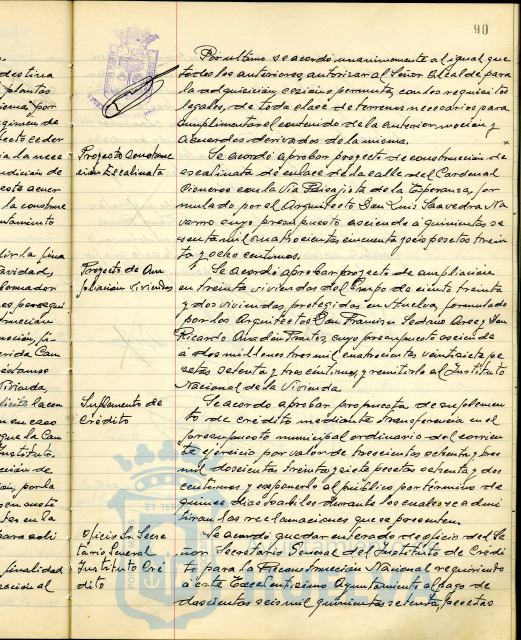 90
Por último se acordó unanimemente al igual que
todos los anteriores, autorizar al Señor Alcalde para
la adquisición, cesión o permuta, con los requisitos
legales, de toda clase de terrenos necesarios para
cumplimentar el contenido de la anterior moción y
acuerdos derivados de la misma.
Proyecto construc
ción Escalinata
Se acordó aprobar proyecto de construcción de
escalinata de enlace de la calle del Cardenal
Cisneros con la Vía Paisajista de la Esperanza, for
mulado por el Arquitecto Don Luis Saavedra Na
varro cuyo presupuesto asciende a quinientas se
senta mil cuatrocientas cincuenta y seis pesetas trein
ta y ocho centimos.
Proyecto de Am
pliación viviendas
Se acordó aprobar proyecto de ampliación
en treinta viviendas del Grupo de ciento treinta
y dos viviendas protegidas en Huelva, formulado
por los Arquitectos Don Francisco Sedano Arce y Don
Ricardo Anadón Frutos, cuyo presupuesto asciende
a dos millones tres mil cuatrocientas veintisiete pe
setas setenta y tres centimos, y remitirlo al Instituto
Nacional de la Vivienda
Suplemento de
Crédito
Se acordó aprobar propuesta de suplemen
to de crédito mediante transferencia en el
presupuesto municipal ordinario del corrien
te ejercicio por valor de trescientas setenta y tres
mil doscientas treinta y siete pesetas setenta y dos
centimos y exponerlo al público por término de
quince dias habiles durante los cuales se admi
tiran las reclamaciones que se presenten.
Oficio Sr. Secre
tario General
Instituto Cré
dito
Se acordó quedar enterado de oficio del Se
ñor Secretario General del Instituto de Crédi
to para la Reconstrucción Nacional requiriendo
a este Excelentisimo Ayuntamiento al pago de
doscientas seis mil quinientas setenta, pesetas